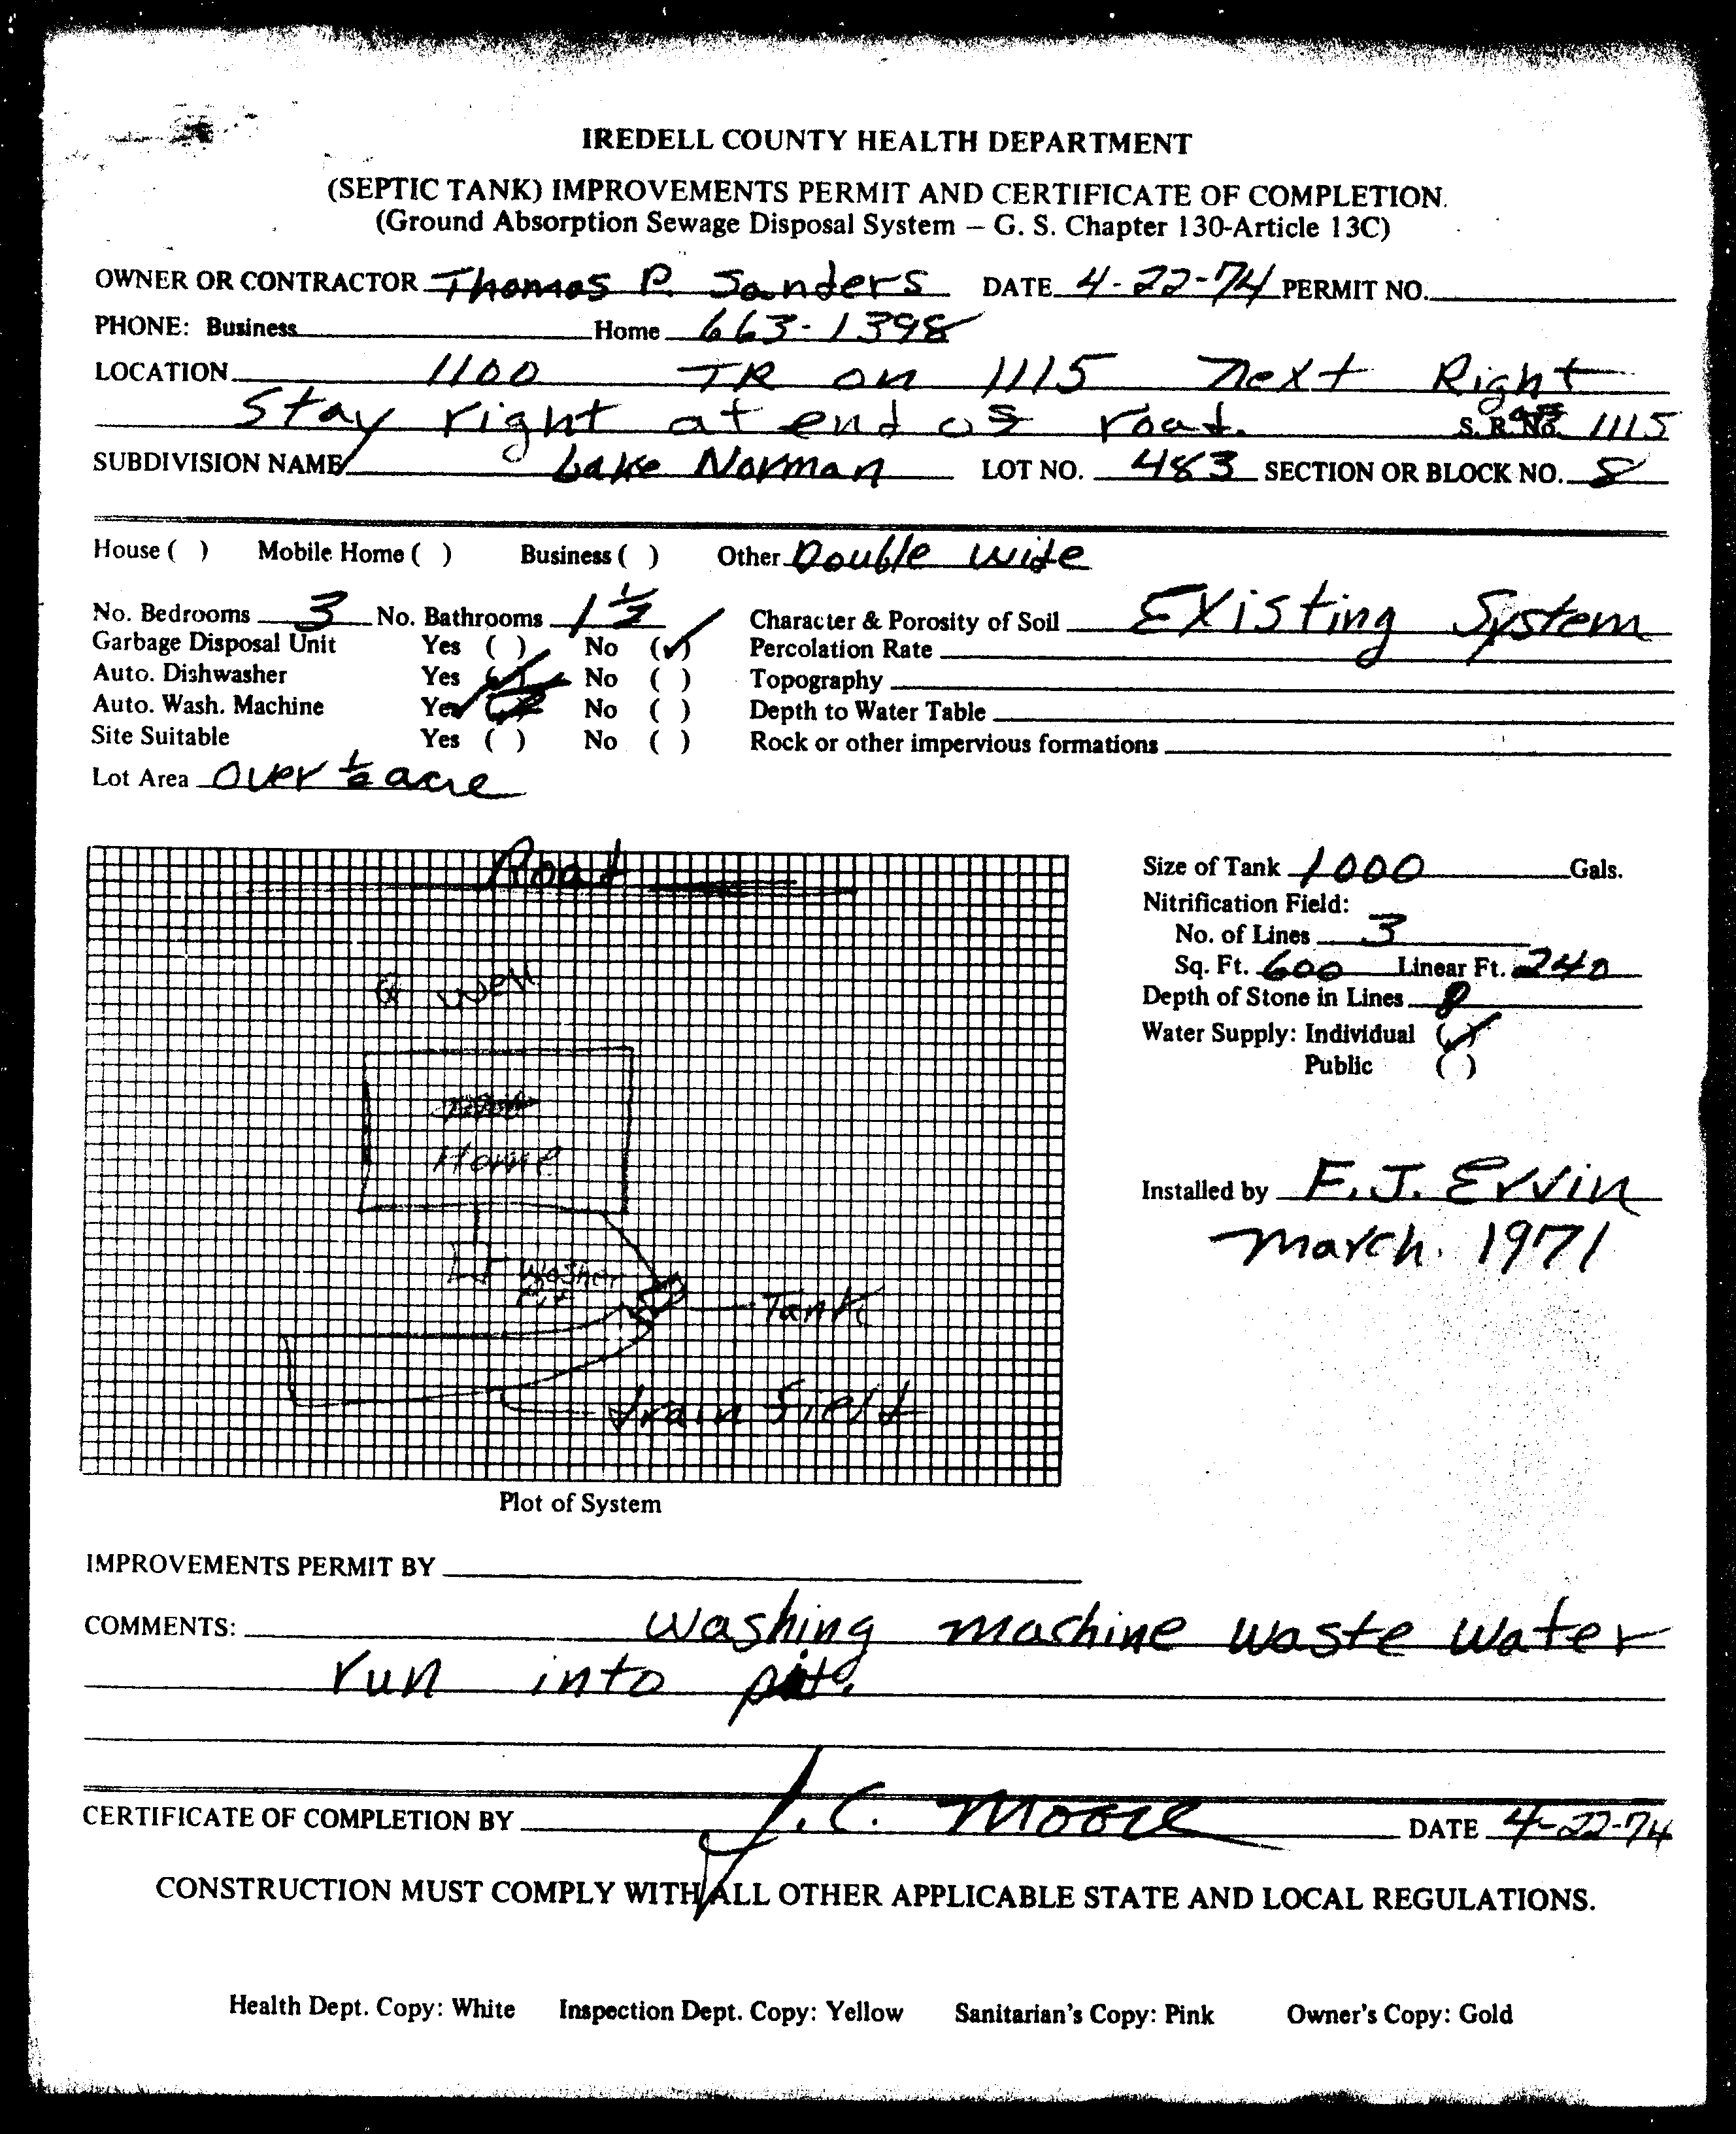 IREDELL COUNTY HEALTH DEPARTMENT
(SEPTIC TANK) IMPROVEMENTS PERMIT AND CERTIFICATE OF COMPLETION.
(Ground Absorption Sewage Disposal System – G. S. Chapter 130-Article 13C)
OWNER OR CONTRACTOR Thomas P. Sanders DATE 4-22-74 PERMIT NO.
PHONE: Business Home 663-1398
LOCATION 1100 TR on 1115 next Right
Stay right at end of road. S. R. No. 1115
SUBDIVISION NAME Lake Norman LOT NO. 483 SECTION OR BLOCK NO. 8
House ( ) Mobile Home ( ) Business ( ) Other Double wide
No. Bedrooms 3 No. Bathrooms 1 1/2 Character & Porosity of Soil Existing System
Garbage Disposal Unit Yes ( ) No (✓) Percolation Rate
Auto. Dishwasher Yes (✓) No ( ) Topography
Auto. Wash. Machine Yes (✓) No ( ) Depth to Water Table
Site Suitable Yes ( ) No ( ) Rock or other impervious formations
Lot Area Over 1/2 acre
Road
Well
Home
Washer
Pit
Tank
drain field
Plot of System
Size of Tank 1000 Gals.
Nitrification Field:
No. of Lines 3
Sq. Ft. 600 Linear Ft. 240
Depth of Stone in Lines 8
Water Supply: Individual (✓)
Public ( )
Installed by F. J. Ervin
March. 1971
IMPROVEMENTS PERMIT BY
COMMENTS: washing machine waste water
run into pit.
CERTIFICATE OF COMPLETION BY J. C. Moore DATE 4-22-74
CONSTRUCTION MUST COMPLY WITH ALL OTHER APPLICABLE STATE AND LOCAL REGULATIONS.
Health Dept. Copy: White Inspection Dept. Copy: Yellow Sanitarian's Copy: Pink Owner's Copy: Gold